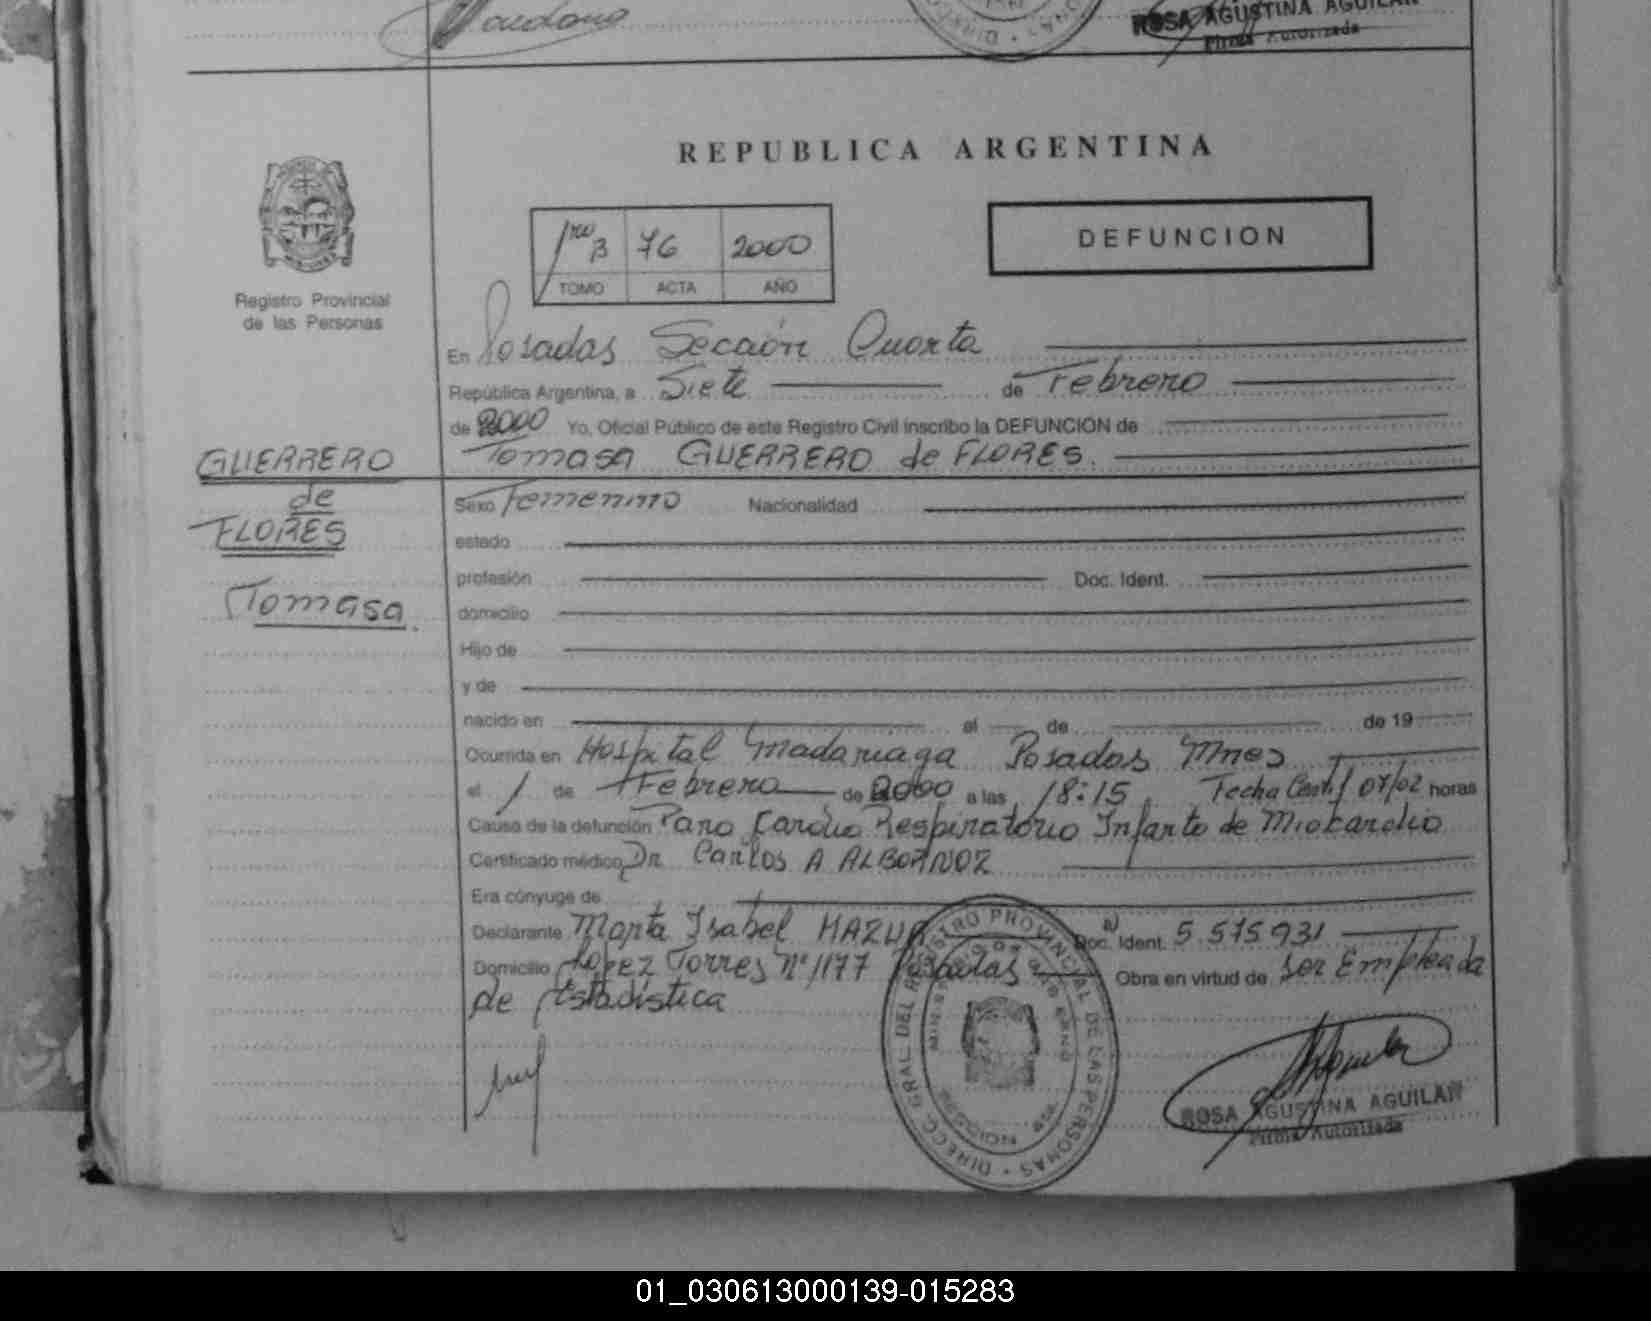 ROSA AGUSTINA AGUILAR
Firma Autorizada
REPUBLICA ARGENTINA
1ro B 76 2000
TOMO ACTA AÑO
DEFUNCION
Registro Provincial
de las Personas
En Posadas Sección Cuarta
República Argentina, a Siete de Febrero
de 2000 Yo, Oficial Público de este Registro Civil inscribo la DEFUNCION de
Tomasa GUERRERO de FLORES.
GUERRERO
de
FLORES
Tomasa.
Sexo Femenino Nacionalidad
estado
profesión Doc. Ident.
domicilio
Hijo de
y de
nacido en el de de 19
Ocurrida en Hospital Madariaga Posadas Mnes
el 1 de Febrero de 2000 a las 18:15 Fecha Certif 07/02 horas
Causa de la defunción Paro Cardio Respiratorio Infarto de Miokardio
Certificado médico Dr Carlos A ALBORNOZ
Era cónyuge de
Declarante Marta Isabel MAZUR Doc. Ident. 5.575.931
Domicilio López Torres Nº 1177 Posadas Obra en virtud de ser Empleada
de Estadística
DIRECC. GRAL. DEL REGISTRO PROVINCIAL DE LAS PERSONAS
ROSA AGUSTINA AGUILAR
Firma Autorizada
01_030613000139-015283